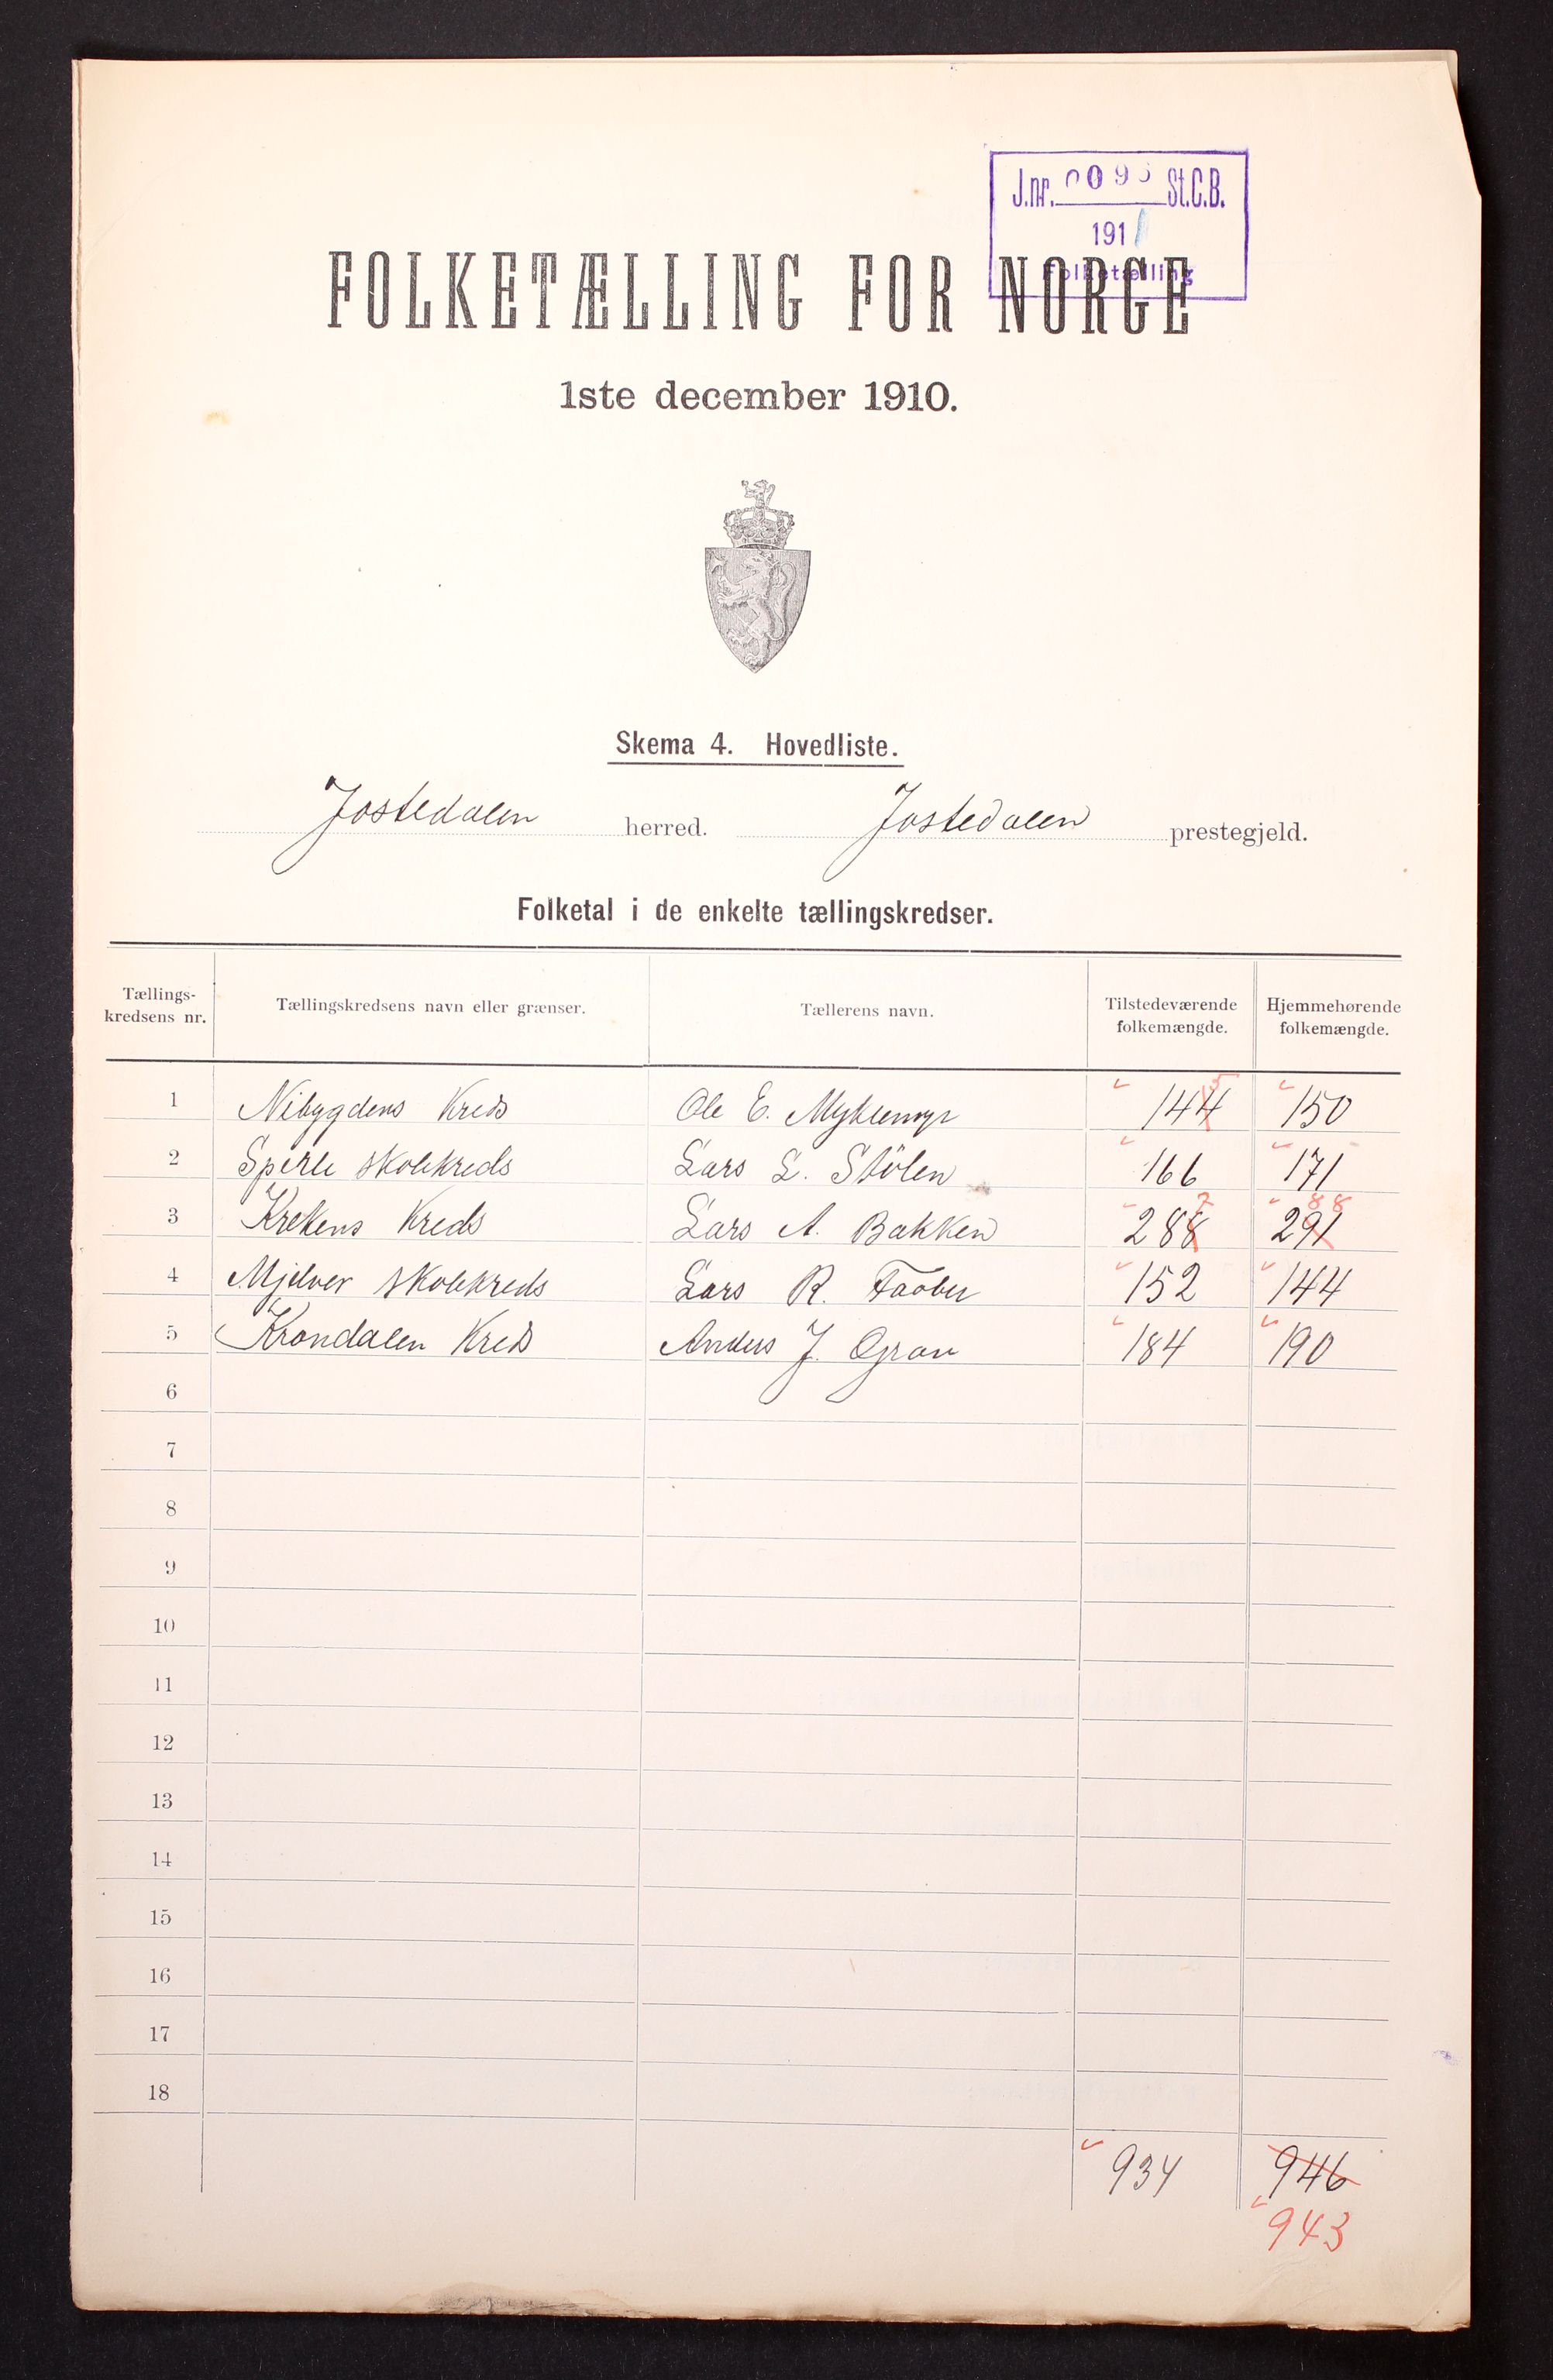 J.nr. 009 St.C.B.
1911
Folketælling
FOLKETÆLLING FOR NORGE
1ste december 1910.
Skema 4. Hovedliste.
Jostedalen herred. Jostedalen prestegjeld.
Folketal i de enkelte tællingskredser.
Tællings-
kredsens nr.
Tællingskredsens navn eller grænser.
Tællerens navn.
Tilstedeværende
folkemængde.
Hjemmehørende
folkemængde.
5
1 Nibygdens Kreds Ole E. Myklemyr 144 150
2 Sperle skolekreds Lars L. Stölen 166 171
7 88
3 Krekens Kreds Lars A. Bakken 288 291
4 Mjelver skolekreds Lars R. Faaber 152 144
5 Krondalen Kreds Anders J. Gran 184 190
6
7
8
9
10
11
12
13
14
15
16
17
18
934 946
943